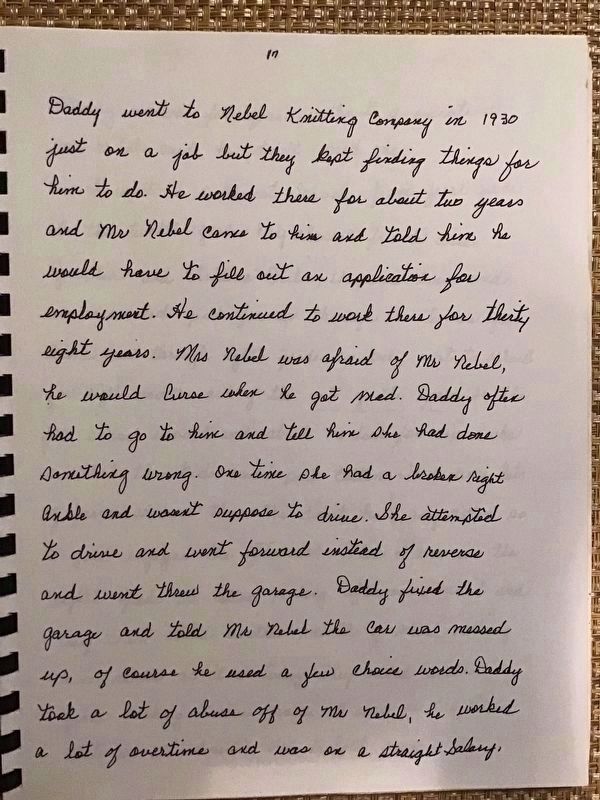 17
Daddy went to Nebel Knitting Company in 1930
just on a job but they kept finding things for
him to do. He worked there for about two years
and Mr Nebel came to him and told him he
would have to fill out an application for
employment. He continued to work there for thirty
eight years. Mrs Nebel was afraid of Mr Nebel,
he would curse when he got mad. Daddy often
had to go to him and tell him she had done
something wrong. One time she had a broken right
ankle and wasent suppose to drive. She attempted
to drive and went forward instead of reverse
and went threw the garage. Daddy fixed the
garage and told Mr Nebel the car was messed
up, of course he used a few choice words. Daddy
took a lot of abuse off of Mr Nebel, he worked
a lot of overtime and was on a straight Salary.